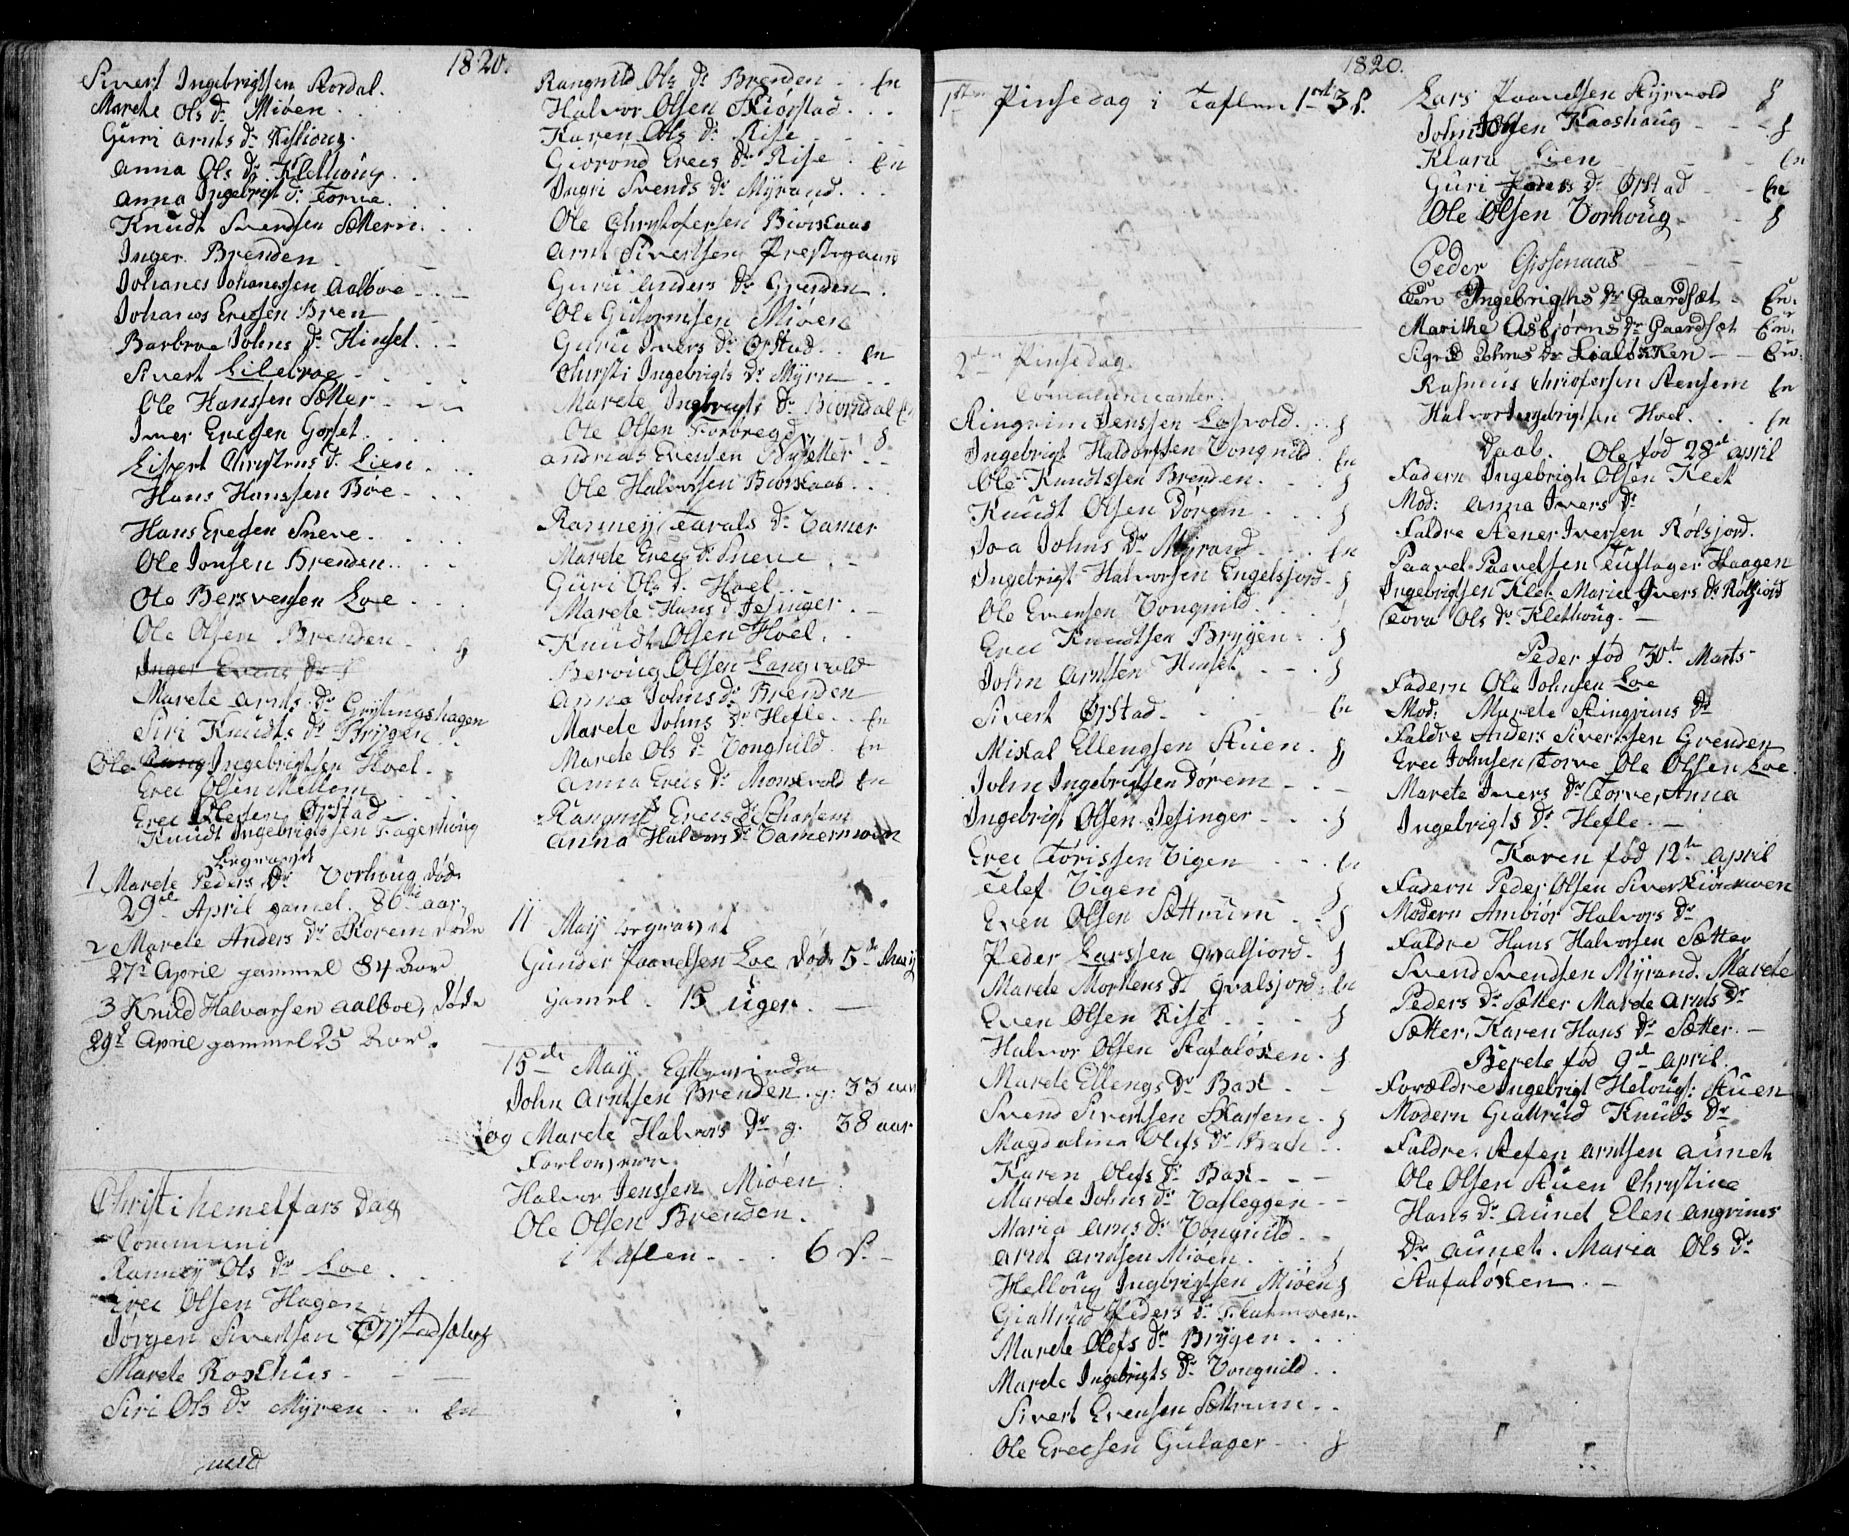 1820.
Sivert Ingebrigtsen Stordal.
Marete Ols Dr Miöen
Guri Arnts Dr
Anna Ols Dr Klethoug
Anna Ingebrigt Dr Torve
Knudt Svendsen Sættern
Inger Brenden
Johanes Johanessen Aalboe
Johanes Ericsen Bren
Barbroe Johns Dr Hinset
Sivert Lileboe
Ole Hanssen Sætter
Iver Ericsen Gorset
Lispet Christens Dr Lien
Hans Hanssen Böe
Hans Ericsen Sneve
Ole Jonsen Brenden
Ole Bersvensen Loe
Ole Olsen Brenden
Inger Evens Dr
Marete Arnts Dr Grytingshagen
Siri Knudts Dr Brygen
Ole Ingebrigtsen Hoel
Eric Olsen Mellem
Eric Olesen Örstad
Knudt Ingebrigtssen Fagerhoug
Begravet
1 Marete Peders Dr Vorhoug död
29de April gamel. 86 aar
2 Marete Anders Dr Skorem döde
27de April gammel 84 Aar
3 Knud Halvarsen Aalboe, döde
29de April gammel 25 Aar.
Christi hemelfars Dag
Communi
Ranney Ols Dr Loe
Eric Olsen Hagen
Jörgen Sivertsen
Marete Roxhus
Siri Ols Dr Myren . . En
Rangnild Ols Dr Brenden . . En
Halvor Olsen Skiörstad
Karen Ols Dr Rise
Giörond Erics Dr Rise . En
Ingri Svends Dr Myrand
Ole Christofersen Biörkaas
Arnt Sivertsen Prestegaard
Guru Anders Dr Grenden
Ole Gutormsen Miöen
Guru Ivers Dr Örstad . . En
Christi Ingebrigts Dr Myrn
Marete Ingebrigts Dr Biörndal En
Ole Olsen
Andreas Evensen
Ole Halvorsen Biörkaas
Ranney Tarals Dr Vamer
Marete Erics Dr Sneve
Guri Ols Dr Hoel
Marete Hans Dr Jesinger
Knudt Olsen Hoel
Beroug Olsen Langvold
Anna Johns Dr Brenden
Marete Johns Dr Hefle . . En
Marete Ols Dr Vongnild . En
Anna Erics Dr Monsvold En
Rangnil Erics Dr Skarsem
Anna Halvors Dr Vamermoen
11 May begravet
Gunder Paavelsen Loe Död 5te May
gamel. 15 uger.
15de May. Egteviede
John Arntsen Brenden . g. 33 aar
og Marete Halvors Dr g. 38 aar
Forlovere
Halvor Jenssen Miöen
Ole Olsen Brenden.
i taflen . . . 6 S.
1820.
1ste Pinsedag i Taflen 1rd 3 S.
2den Pinsedag.
Comunicanter.
Ringvim Jenssen Losvold
Ingebrigt Haldorssen Vongnild En
Ole Knudtssen Brenden
Knudt Olsen Dörem
Joa Johns Dr Myrand . . En
Ingebrigt Halvorsen Engelsjord
Ole Evensen Vongnild
Eric Knudtsen Brygen
John Arntsen Hinset
Sivert Örstad . . En
Mikal Ellengsen Stuen
John Ingebrigtsen Dörem
Ingebrigt Olsen Jesinger
Eric Törissen Vigen . . En
Telef Vigen
Even Olsen Sættrum
Peder Larssen Qvalsiord
Marete Mortens Dr Qvalsjord . En
Even Olsen Rise
Halvor Olsen Stafalöken
Marete Ellengs Dr Bax
Svend Sivertsen Skarsem
Magdalina Olefs Dr Bach
Karen Olefs Dr Bax
Marete Johns Dr Vasleggen
Maria Arns Dr Vongnild
Arnt Arntsen Miöen
Helloug Ingebrigtsen Miöen
Giattrud Peders Dr
Marete Olefs Dr Brygen
Marete Ingebrigts Dr Vongnild
Sivert Evensen Sættrum
Ole Ericsen Gulager
Lars Paavelsen Styrvold
John Olsen Kaashoug
Klara Lien . . En
Guri Peders Dr Örstad . . En
Ole Olsen Vorhoug
Peder Gissenaas
Elen Ingebrigts Dr Gaardsæt . En.
Marithe Asbjörns Dr Gaardsæt En.
Sigrid Johns Dr Lialökken . . En.
Rasmus Christofersen Stensem En
Halvor Ingebrigtsen Hoel . . En
Daab. Ole föd 28de April
Fadern Ingebrigt Olsen Klet
Mod: Anna Ivers Dr
Faldre Stener Iversen Rölsjord.
Paavel Paavelsen Tuflager Haagen
Ingebrigtsen Klet Maria Ivers Dr Rölsjord
Tora Ols Dr Klethoug.
Peder föd 30te Marts
Fadern Ole Johnsen Loe
Mod: Marete Ringvims Dr
Faldre Anders Sivertsen Grenden
Eric Johnsen Torve Ole Olssen Loe
Marete Ivers Dr Torve, Anna
Ingebrigts Dr Hefle.
Karen föd 12te April
Fadern Peder Olsen
Modern Ambiör Halvors Dr
Faldre Hans Halvorsen Sætter
Svend Svendsen Myrand. Marete
Peders Dr Sætter Marete Arnts Dr
Sætter, Karen Hans Dr Sætter.
Berete föd 9de April
Forældre Ingebrigt Heloug: Stuen
Modern Giattrud Knuts Dr
Faldre. Stefen Arntsen Aunet
Ole Olsen Stuen Christine
Hans Dr Aunet Elen Angrims
Dr Aunet. Maria Ols Dr
Stafalöken.